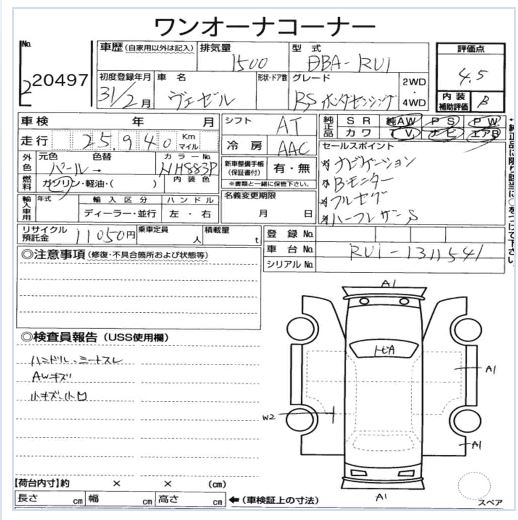 ワンオーナーコーナー
No. 220497
車歴 (自家用以外は記入)
排気量 1500
型式 DBA-RU1
評価点 4.5
初度登録年月 31/2月
車名 ヴェゼル
形状・ドア数
グレード RS ホンダセンシング
2WD・4WD
内装補助評価 B
車検 年 月
シフト AT
純正品 SR 純AW PS PW
カワ TV ナビ エアB
走行 25,940 Km マイル
冷房 AAC
セールスポイント
ナビゲーション
Bモニター
フルセグ
ハーフレザーS
外色 元色 色替 パール
カラーNo. NH883P
新車整備手帳(保証書付) 有・無
※書類と一緒に保管下さい。
燃料 ガソリン・軽油・( )
内装色
名義変更期限 月 日
輸入車用 年式 輸入区分 ハンドル
ディーラー・並行 左・右
リサイクル預託金 11050円
乗車定員 人
積載量 t
登録No.
車台No. RU1-1311541
シリアルNo.
◎注意事項 (修復・不具合箇所および状態等)
◎検査員報告 (USS使用欄)
ハンドル・シートスレ
AWキズ
小キズ、小凹
A1
トビA
A1
W2
A1
A1
スペア
【荷台内寸】約 × × (cm)
長さ cm 幅 cm 高さ cm ←(車検証上の寸法)